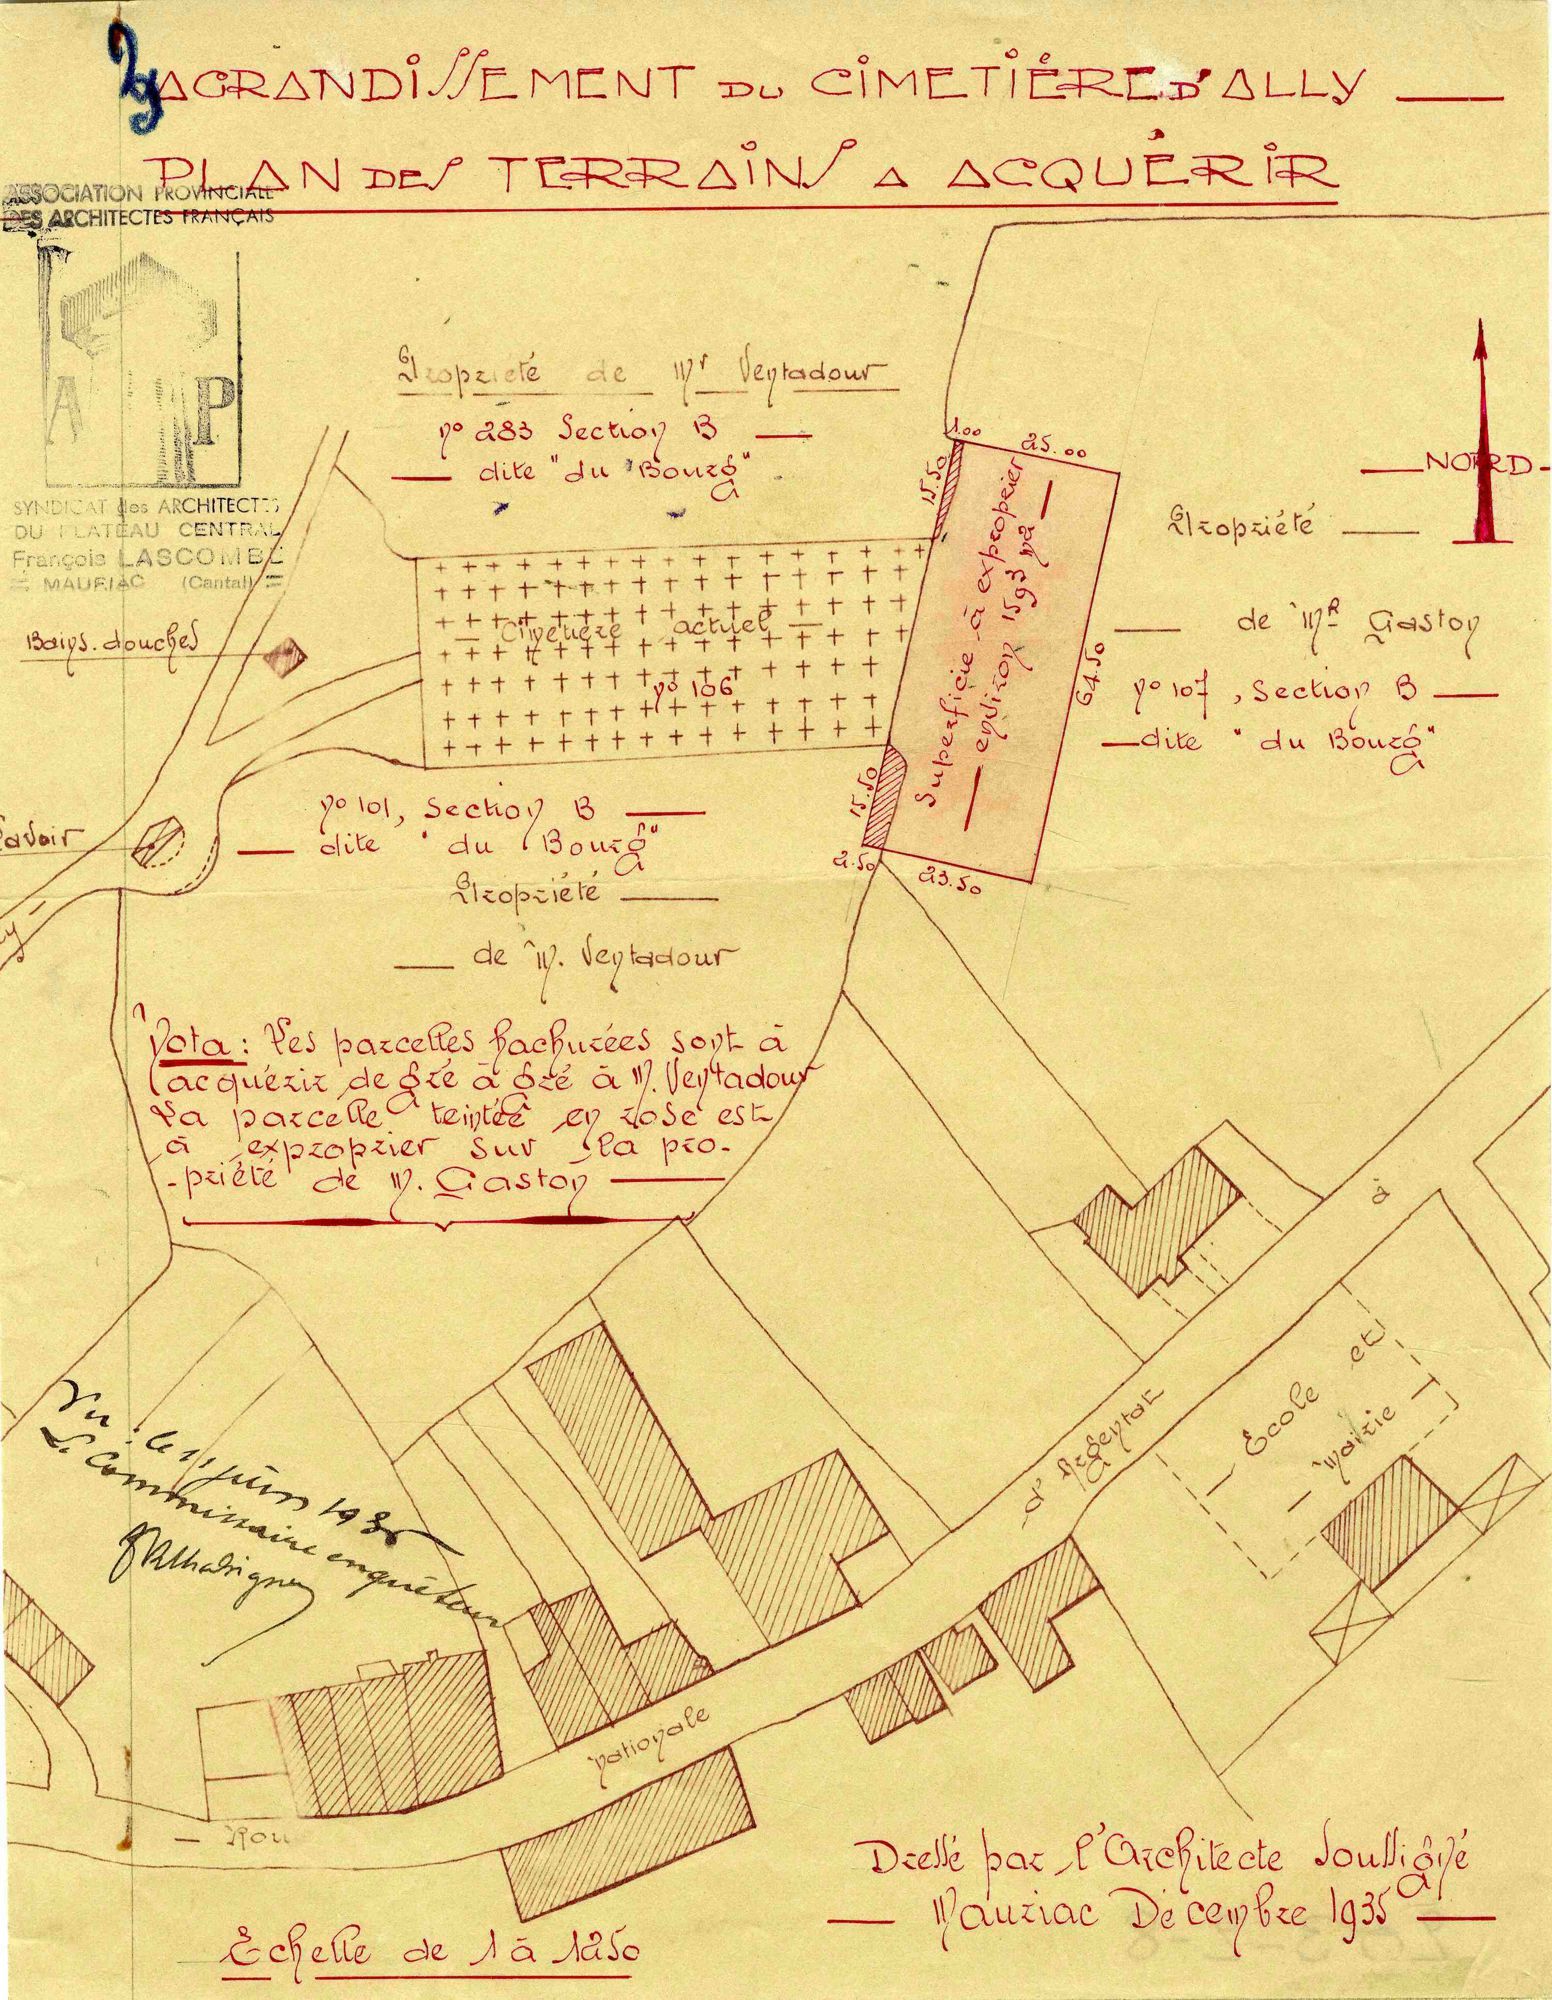 29
AGRANDISSEMENT DU CIMETIÈRE D'ALLY
PLAN DES TERRAINS A ACQUÉRIR
ASSOCIATION PROVINCIALE
DES ARCHITECTES FRANÇAIS
A P
SYNDICAT des ARCHITECTES
DU PLATEAU CENTRAL
François LASCOMBE
MAURIAC (Cantal)
Propriété de Mr Ventadour
no 283 Section B
dite "du Bourg"
1.00
25.00
15.50
NORD
Superficie à exproprier
environ 1593 m2
64.50
Propriété
de MR Gaston
no 107, Section B
dite "du Bourg"
Cimetière actuel
no 106
Bains. douches
Lavoir
15.50
2.50
23.50
no 101, Section B
dite "du Bourg"
Propriété
de M. Ventadour
Nota: Les parcelles hachurées sont à
acquérir de gré à gré à M. Ventadour
La parcelle teintée en rose est
à exproprier sur la pro-
-priété de M. Gaston
à
d'Argentat
École et
Mairie
Vu: le 11 juin 1936
Le Commissaire enquêteur
nationale
Rou
Dressé par l'Architecte Soussigné
Mauriac Décembre 1935
Echelle de 1 à 1250